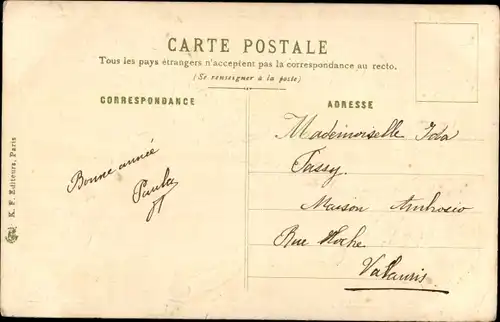 CARTE POSTALE
Tous les pays étrangers n'acceptent pas la correspondance au recto.
(Se renseigner à la poste)
CORRESPONDANCE
ADRESSE
Bonne année
Paula
Mademoiselle Ida
Tassy.
Maison Ambrosio
Rue Hoche
Vallauris.
K. F. Editeurs, Paris